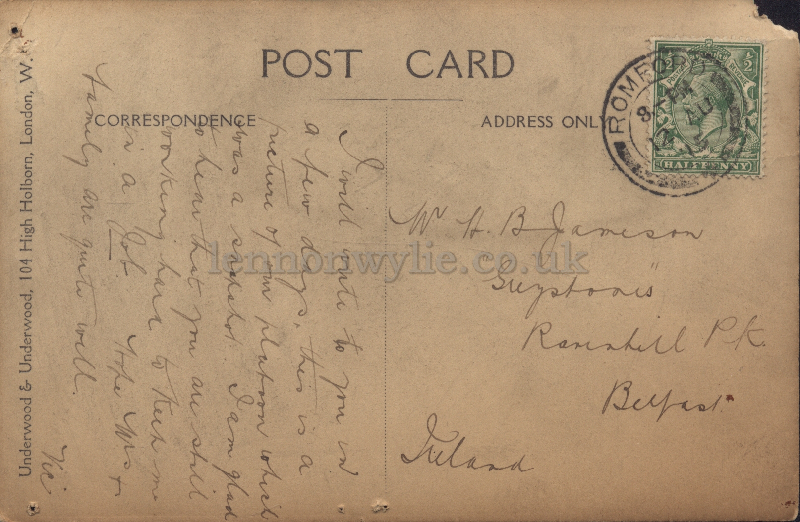 POST CARD
CORRESPONDENCE
ADDRESS ONLY
I will write to you in
a few days, this is a
picture of our platoon which
was a snapshot. I am glad
to hear that you are still
working hard to keep me
in a Job Hope Mrs +
family are quite well.
Vic
Mr H. B. Jameson
"Greystones"
Ravenhill Pk.
Belfast
Ireland
Underwood & Underwood, 104 High Holborn, London, W.
ROMFORD
HALFPENNY
lennonwylie.co.uk